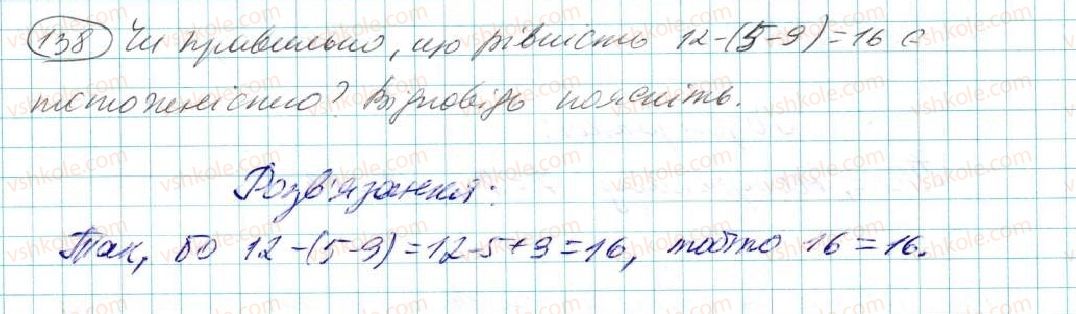 138 Чи правильно, що рівність 12-(5-9)=16 є
тотожністю? Відповідь поясніть.
Розв'язання:
Так, бо 12-(5-9)=12-5+9=16, тобто 16=16.